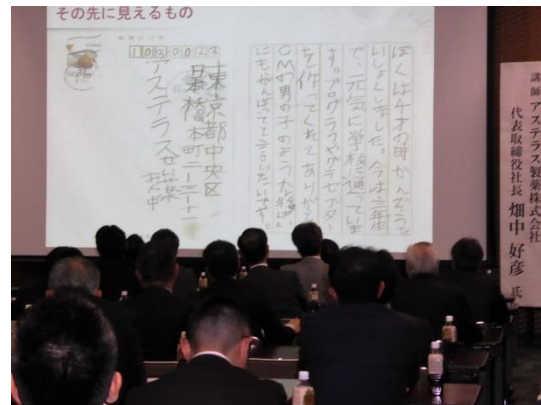 その先に見えるもの
1030023
東京都中央区
日本橋本町二ー三ー十一
アステラス
ぼくは4才の時かんぞうを
いしょくしました。今は三年生
で、元気に学校に通っていま
す。プログラフやグラセプター
を作ってくれてありがとう
CMの男の子のような
にも、がんばってと言いたいです。
講師 アステラス製薬株式会社
代表取締役社長 畑中 好彦 氏